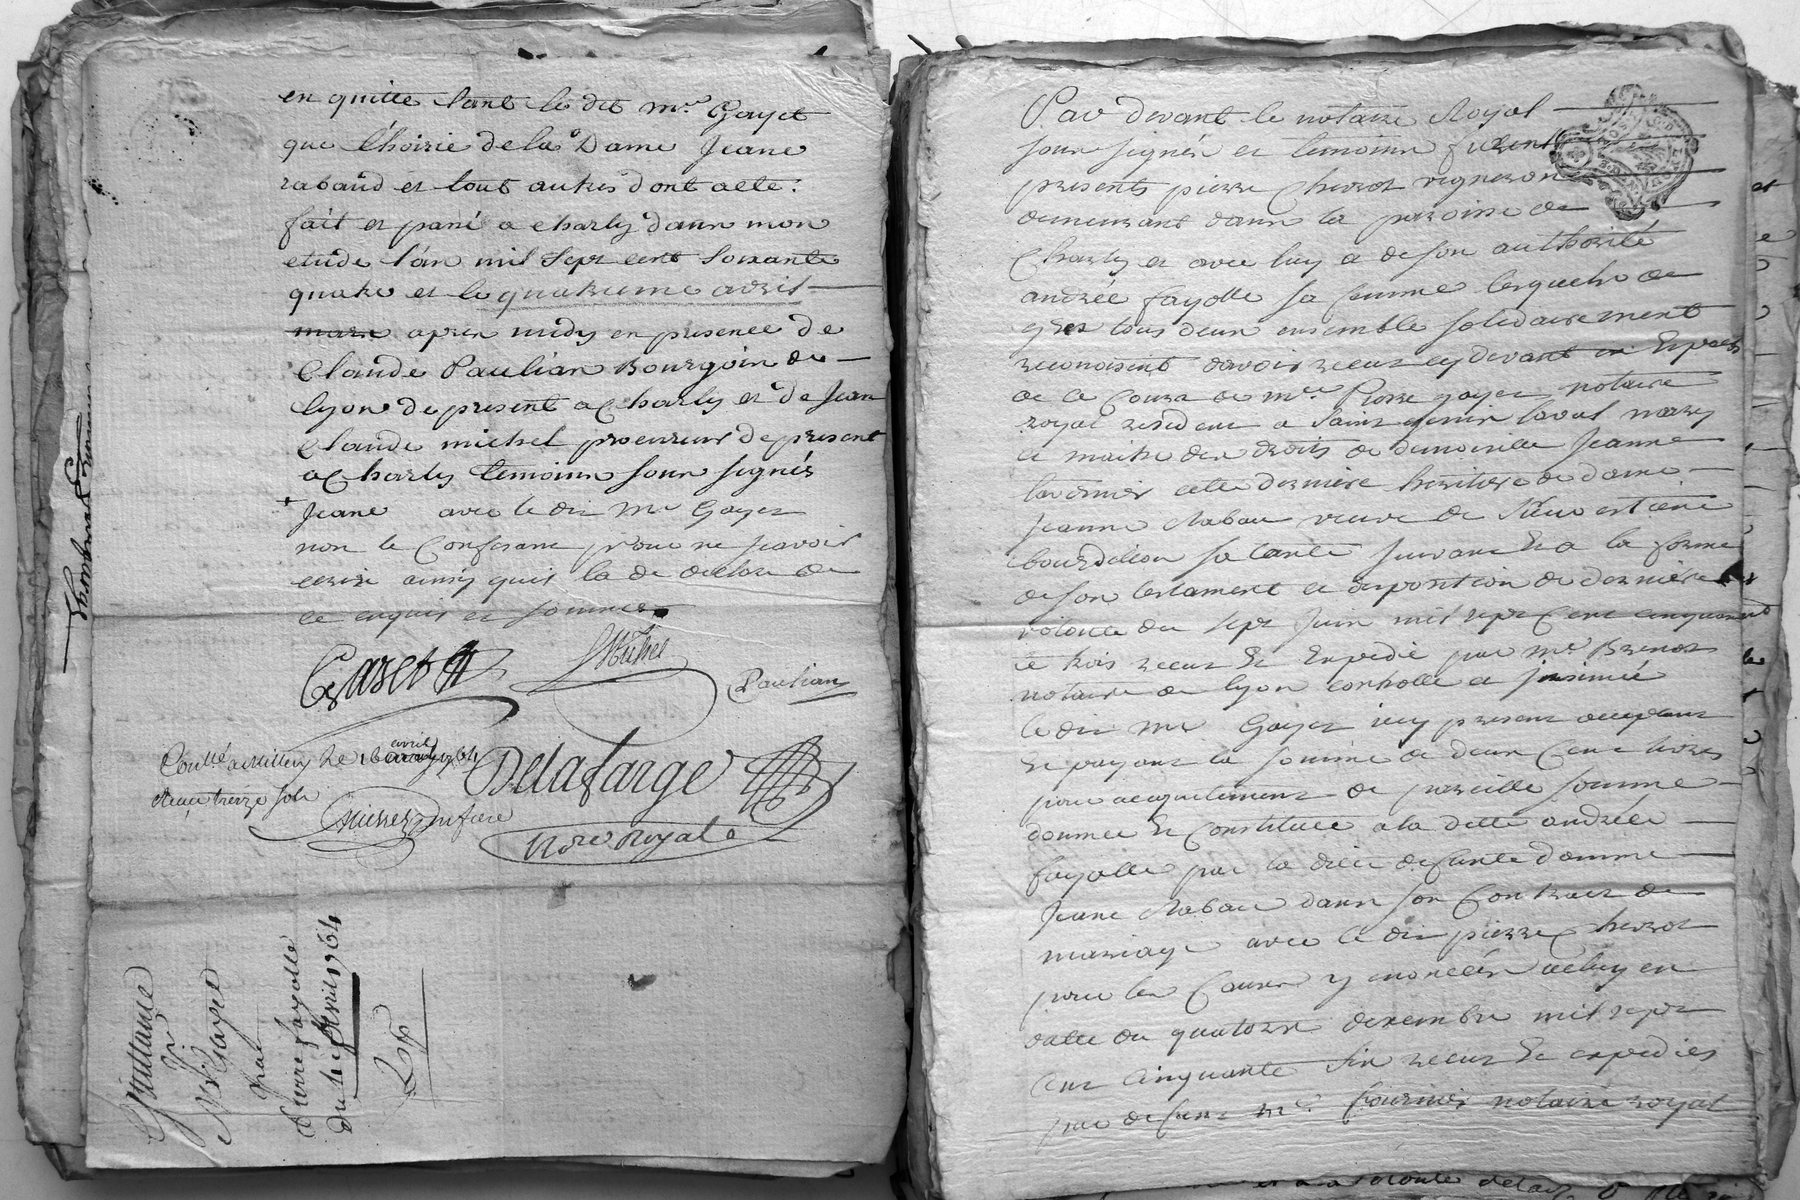 en quitte tant le dit mre Gayet
que l'hoirie de la de Dame Jeane
rabaud et tout autres dont acte:
fait et passé a charly dans mon
etude l'an mil sept cent soixante
quatre et le quatrieme avril
mars apres midy en presence de
Claude Paulian Bourgois de
lyon de present a Charly et de Jean
Claude michel procureur de present
a Charly temoins sous signés
Jeane avec le dit Me Gayet
non le Confessant pour ne scavoir
ecrire ainsy quil la de declare de
ce enquis et sommes
Gayet
Michel
Paulian
Conllé a Millery le 16 avril 1764
Recu treize sols
Delafarge
Nore Royal
Quittance
Pr
Me Gayet
Par
Pierre fayolle
Du 4e Avril 1764
Par devant le notaire Royal
sous signés et temoins furent
presents pierre Chezot vigneron
demeurant dans la paroisse de
Charly et avec luy a de son authorité
andrée fayolle sa femme lesquels de
gres tous deux ensemble solidairement
reconoisent davoir receu cy devant en Especes
de ce Cours de mre Pierre gayet notaire
royal resident a Saint genis laval mary
et maitre des droits de demoiselle Jeanne
cette derniere heritiere de dame
Jeanne Rabau veuve de Sieur estiene
bourdelion sa tante suivant Et a la forme
de son testament et disposition de derniere
volonté du sept Juin mil sept Cent cinquante
et trois receu Et Expedié par Me Brenot
notaire de lyon controllé et insinué
le dit Me Gayet icy present acceptant
Et payant la somme de deux Cent livres
pour acquitement de pareille somme
donnée Et Constituée a la ditte andrée
fayolle par la dite defunte damme
Jeane Rabau dans son Contract de
mariage avec le dit pierre chezot
pour les Causes y enoncées iceluy en
datte du quatorze decembre mil sept
Cent Cinquante Six receu Et expedies
par defunt me fournier notaire royal